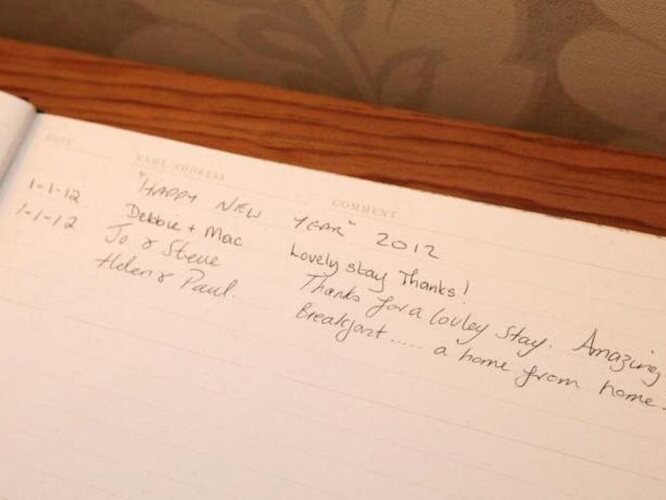 DATE NAME/ADDRESS COMMENT
"HAPPY NEW YEAR" 2012
1-1-12 Debbie + Mac Lovely stay Thanks!
1-1-12 Jo & Steve Thanks for a lovley stay. Amazing
Helen & Paul. Breakfast ..... a home from home.